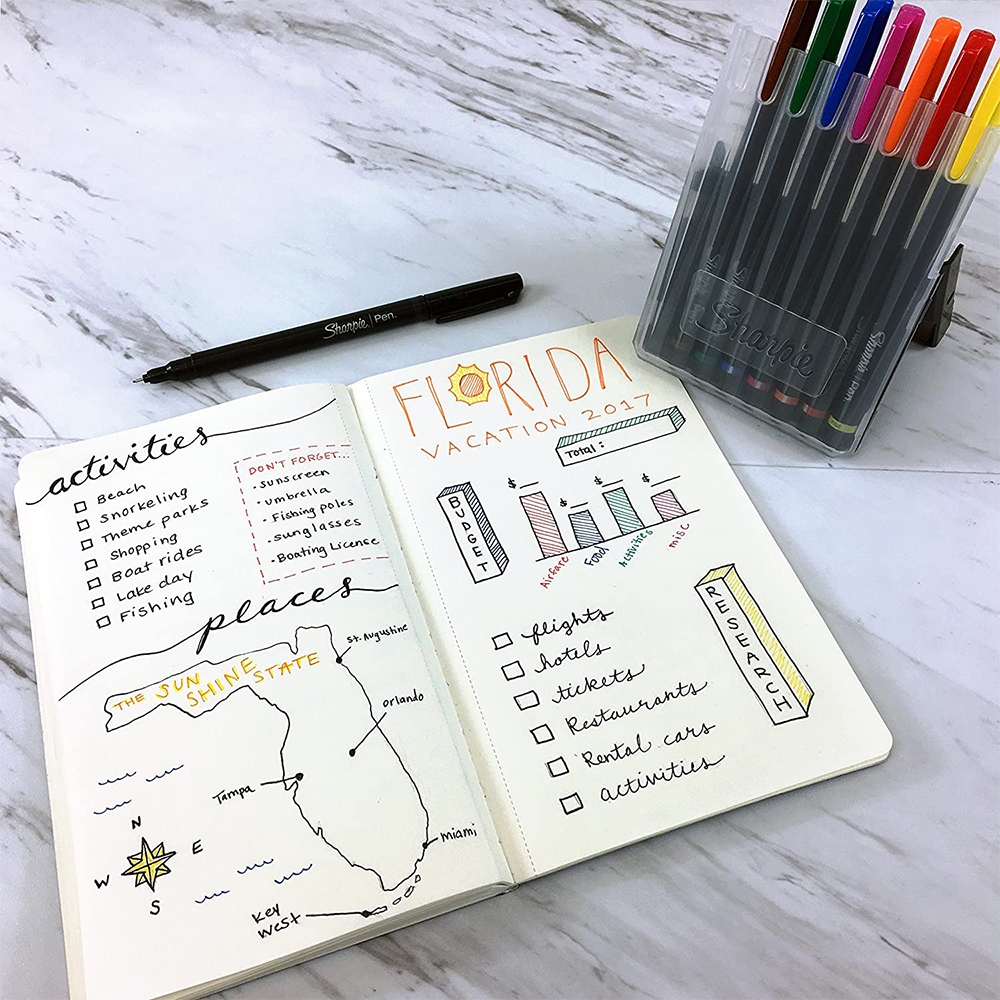 Sharpie | Pen.
Sharpie
Sharpie | Pen
activities
Beach
Snorkeling
Theme parks
Shopping
Boat rides
Lake day
Fishing
DON'T FORGET...
• Sunscreen
• umbrella
• Fishing poles
• sunglasses
• Boating License
places
THE SUN
SHINE STATE
St. Augustine
orlando
Tampa
miami
Key
West
N
E
W
S
FLORIDA
VACATION 2017
Total:
BUDGET
$
$
$
$
Airfare
Food
Activities
misc
RESEARCH
flights
hotels
tickets
Restaurants
Rental cars
activities